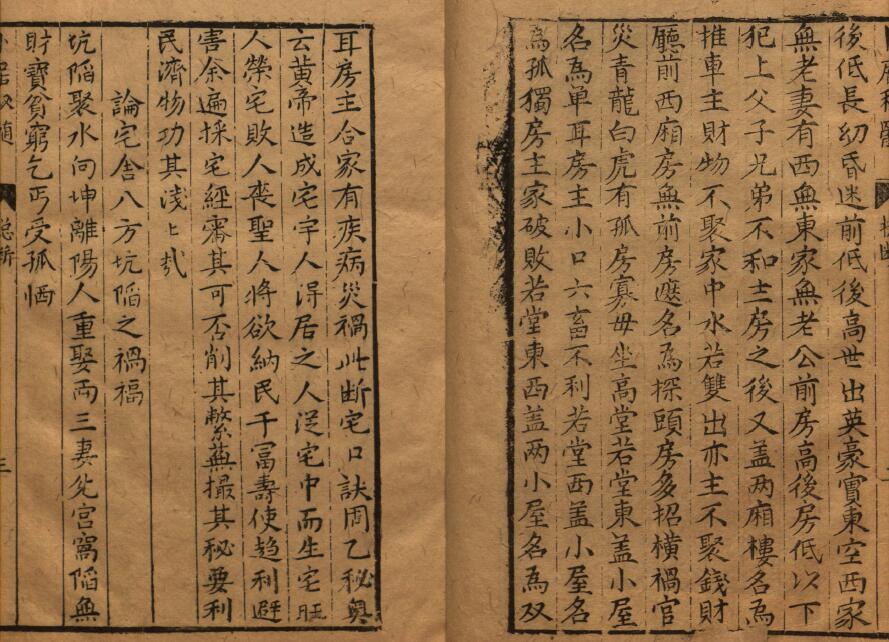 後低長幼昏迷前低後高世出英豪實東空西家
無老妻有西無東家無老公前房高後房低以下
犯上父子兄弟不和主房之後又蓋两廂樓名為
推車主財物不聚家中水若雙出亦主不聚錢財
廳前西廂房無前房遮名為探頭房多招横禍官
災青龍白虎有孤房寡母坐高堂若堂東蓋小屋
名為单耳房主小口六畜不利若堂西蓋小屋名
為孤獨房主家破敗若堂東西盖两小屋名為双
耳房主合家有疾病災禍此断宅口訣周乙秘奥
云黄帝造成宅宇人得居之人從宅中而生宅旺
人榮宅敗人喪聖人將欲納民于冨壽使趋利避
害余遍採宅經審其可否削其繁蕪撮其秘要利
民濟物功其淺上㢤
論宅舎八方坑陷之禍福
坑陷聚水向坤離陽人重娶两三妻兊宫窩陷無
財寶貧窮乞丐受孤恓
三